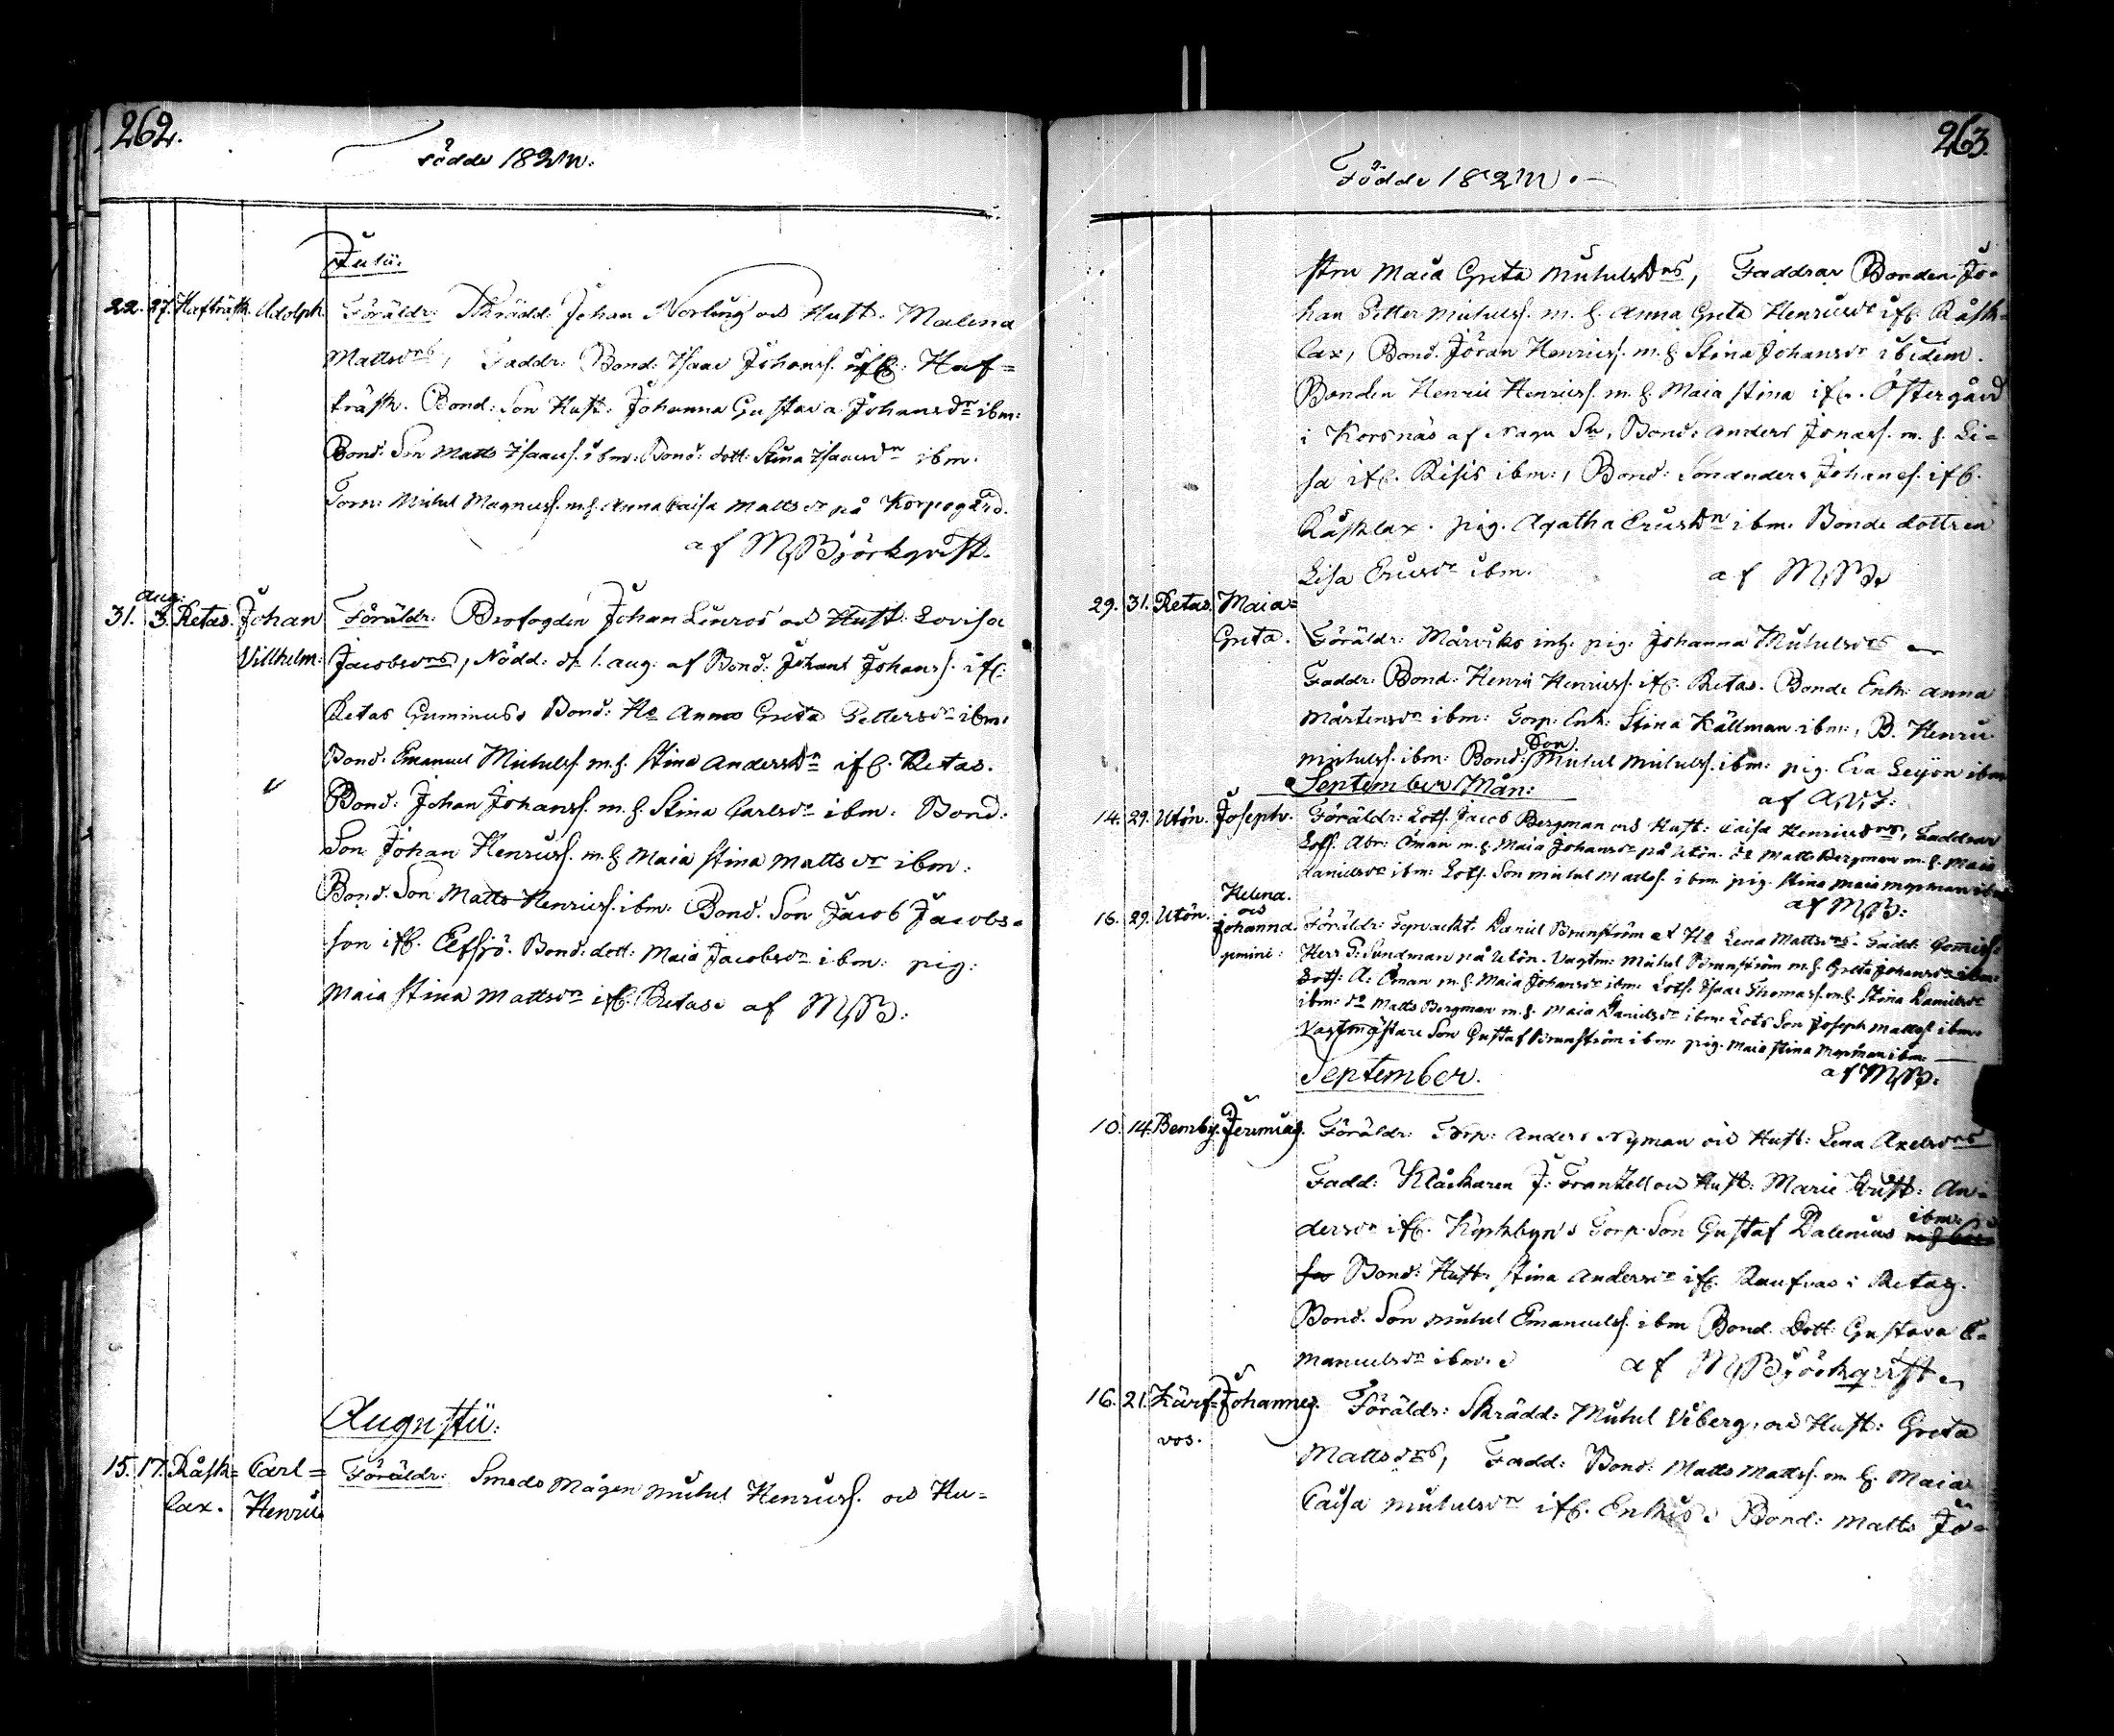 262.
Födde 182
Julii.
22. 27. Hafträsk. Adolph. Föräldr: Skrädd: Johan Norling och Hust. Malena
Mattsdr, Faddr: Bond: Isaac Johanss. ifr. Haf=
träsk. Bond: Son Hust: Johanna Gustava Johansdr ibm:
Bond. Son Matts Isaacss. ibm. Bond: dott: Stina Isaacsdr ibm.
Torp: Michel Magnuss. m.h. Anna Caisa Mattsdr på Korpogård.
af M. Björkqvist.
Aug:
31. 3. Retas. Johan Föräldr: Brofogden Johan Linros och Hust: Lovisa
Villhelm: Jacobsdr, Nödd: d. 1. aug: af Bond: Johan Johanss. ifr.
Retas Bond: Ho Anna Greta Pettersdr ibm:
Bond. Emanuel Michelss. m.h. Stina Andersdr ifr. Retas.
Bond: Johan Johanss. m.h. Stina Carlsdr ibm: Bond:
Son Johan Henricss. m.h. Maia Stina Mattsdr ibm:
Bond. Son Matts Henricss. ibm: Bond. Son Jacob Jacobs=
son ifr. Elfsjö. Bond: dott: Maia Jacobsdr ibm: pig:
Maia Stina Mattsdr ifr. Retas. af M.B:
Augustii:
15. 17. Råsk= Carl= Föräldr: Smeds Mågen Michel Henricss. och Hu=
lax. Henric
263.
Födde 182
stru Maia Greta Michelsdr, Faddrar Bonden Jo=
han Petter Michelss. m.h. Anna Greta Henricsdr ifr. Råsk=
lax, Bond. Jöran Henricss. m.h. Stina Johansdr ibidem.
Bonden Henric Henricss. m.h. Maia Stina ifr. Östergård
i Korsnäs af Nagu Sn, Bond: Anders Jonass. m.h. Li=
sa ifr. Risis ibm:, Bond: Son Anders Johanss. ifr.
Råsklax. pig. Agatha Ericsdr ibm. Bonde dottren
Lisa Ericsdr ibm. af M.B.
29. 31. Retas. Maia=
Greta. Föräldr: inh. pig: Johanna Michelsdr
Faddr: Bond. Henric Henricss. ifr. Retas. Bonde Enk: Anna
Mårtensdr ibm: Torp: Enk: Stina Källman ibm:, B. Henric
Michelss. ibm: Bond: Son Michel Michelss. ibm: pig. Eva Leijon ibm
September Mån: af
14. 29. Utön. Joseph. Föräldr: Lots. Jacob Bergman och Hust: Caisa Henricsdr, Faddrar
Lots. Abr: Öman m.h. Maia Johansdr på Utön. do Matts Bergman m.h. Maia
Danielsdr ibm: Lots. Son Michel Mattss. ibm pig. Stina Maia ibm
af M.B:
Helena
16. 29. Utön. och Johanna. Föräldr: Daniel Brunström et Ho Lena Mattsdr. Fadd:
gemini: Herr G. Sundman på Utön. Vagtm: Michel Brunström m.h. Greta Johansdr ibm:
Lots: A: Öman m.h. Maia Johansdr ibm: Lots. Isaac Thomass. m.h. Stina Danielsdr
ibm: do Matts Bergman m.h. Maia Danielsdr ibm: Lots Son Joseph Mattss. ibm.
Vagtmästare Son Gustaf Brunström ibm: pig. Maia Stina ibm.
September. af M.B.
10. 14. Bemby. Jeremias. Föräldr: Torp: Anders Nyman och Hust: Lena Axelsdr
Fadd: Klåckaren J: Frantzell och Hust: Marie Krist: An=
dersdr ifr. Kyrkbyn. Torp. Son Gustaf Dalenius ibm:
Bond: Hust: Stina Andersdr ifr. i Retas.
Bond. Son Michel Emanuelss. ibm Bond. Dott: Gustava E=
manuelsdr ibm. af M. Björkqvist.
16. 21. Kärf= Johannes. Föräldr: Skrädd: Michel Viberg, och Hust: Greta
vos. Mattsdr, Fadd: Bond: Matts Mattss. m.h. Maia
Caisa Michelsdr ifr. Enkis. Bond: Matts Jo=